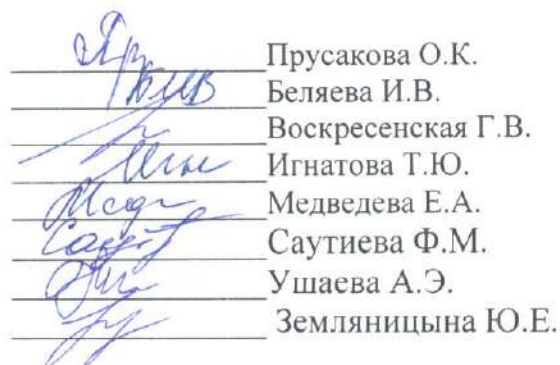 Прусакова О.К.
Беляева И.В.
Воскресенская Г.В.
Игнатова Т.Ю.
Медведева Е.А.
Саутиева Ф.М.
Ушаева А.Э.
Земляницына Ю.Е.